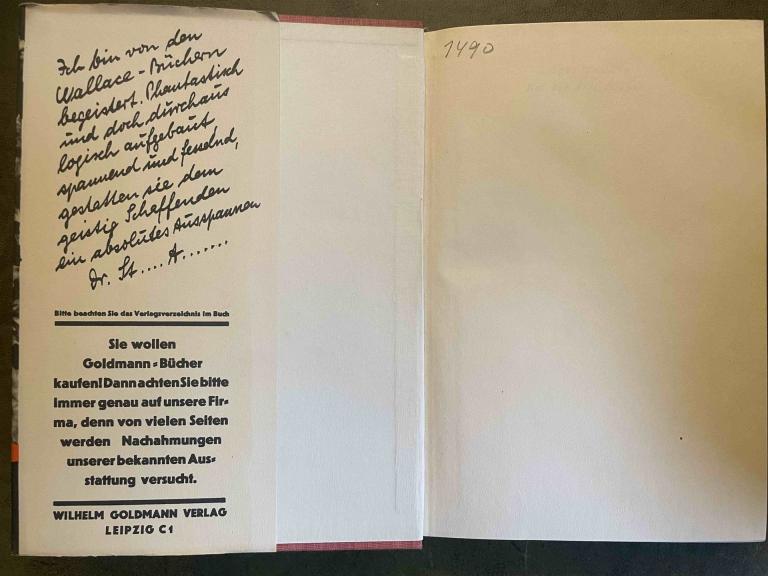 Ich bin von den
Wallace-Büchern
begeistert. Phantastisch
und doch durchaus
logisch aufgebaut
spannend und fesselnd,
gestatten sie dem
geistig Schaffenden
ein absolutes Ausspannen
Dr. St.... A.......
Bitte beachten Sie das Verlagsverzeichnis im Buch
Sie wollen
Goldmann-Bücher
kaufen! Dann achten Sie bitte
immer genau auf unsere Fir-
ma, denn von vielen Seiten
werden Nachahmungen
unserer bekannten Aus-
stattung versucht.
WILHELM GOLDMANN VERLAG
LEIPZIG C1
1490